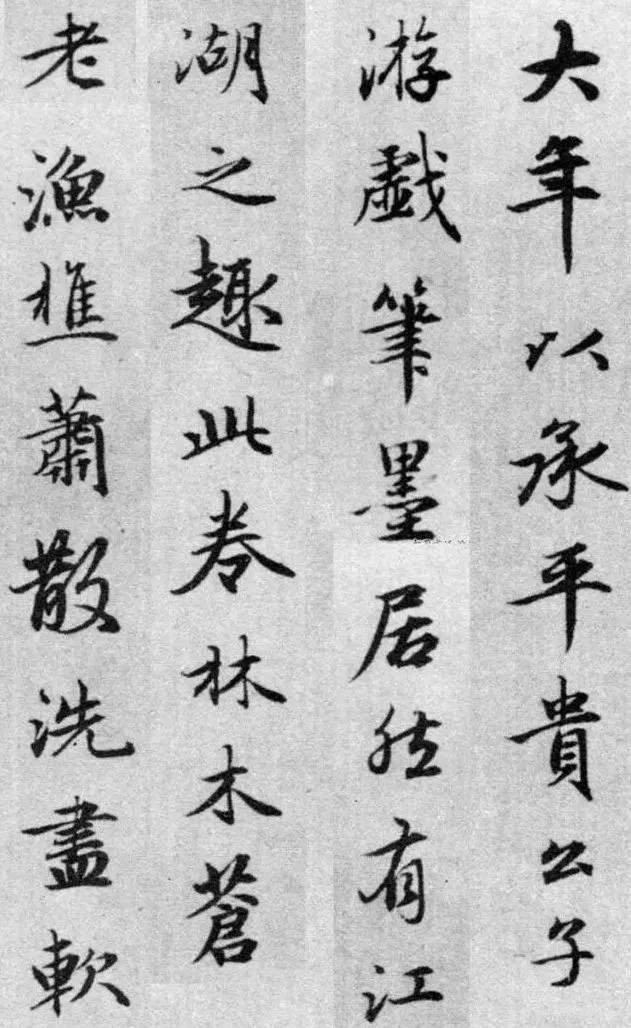 大年以承平貴公子
游戲筆墨居然有江
湖之趣此卷林木蒼
老漁樵蕭散洗盡軟